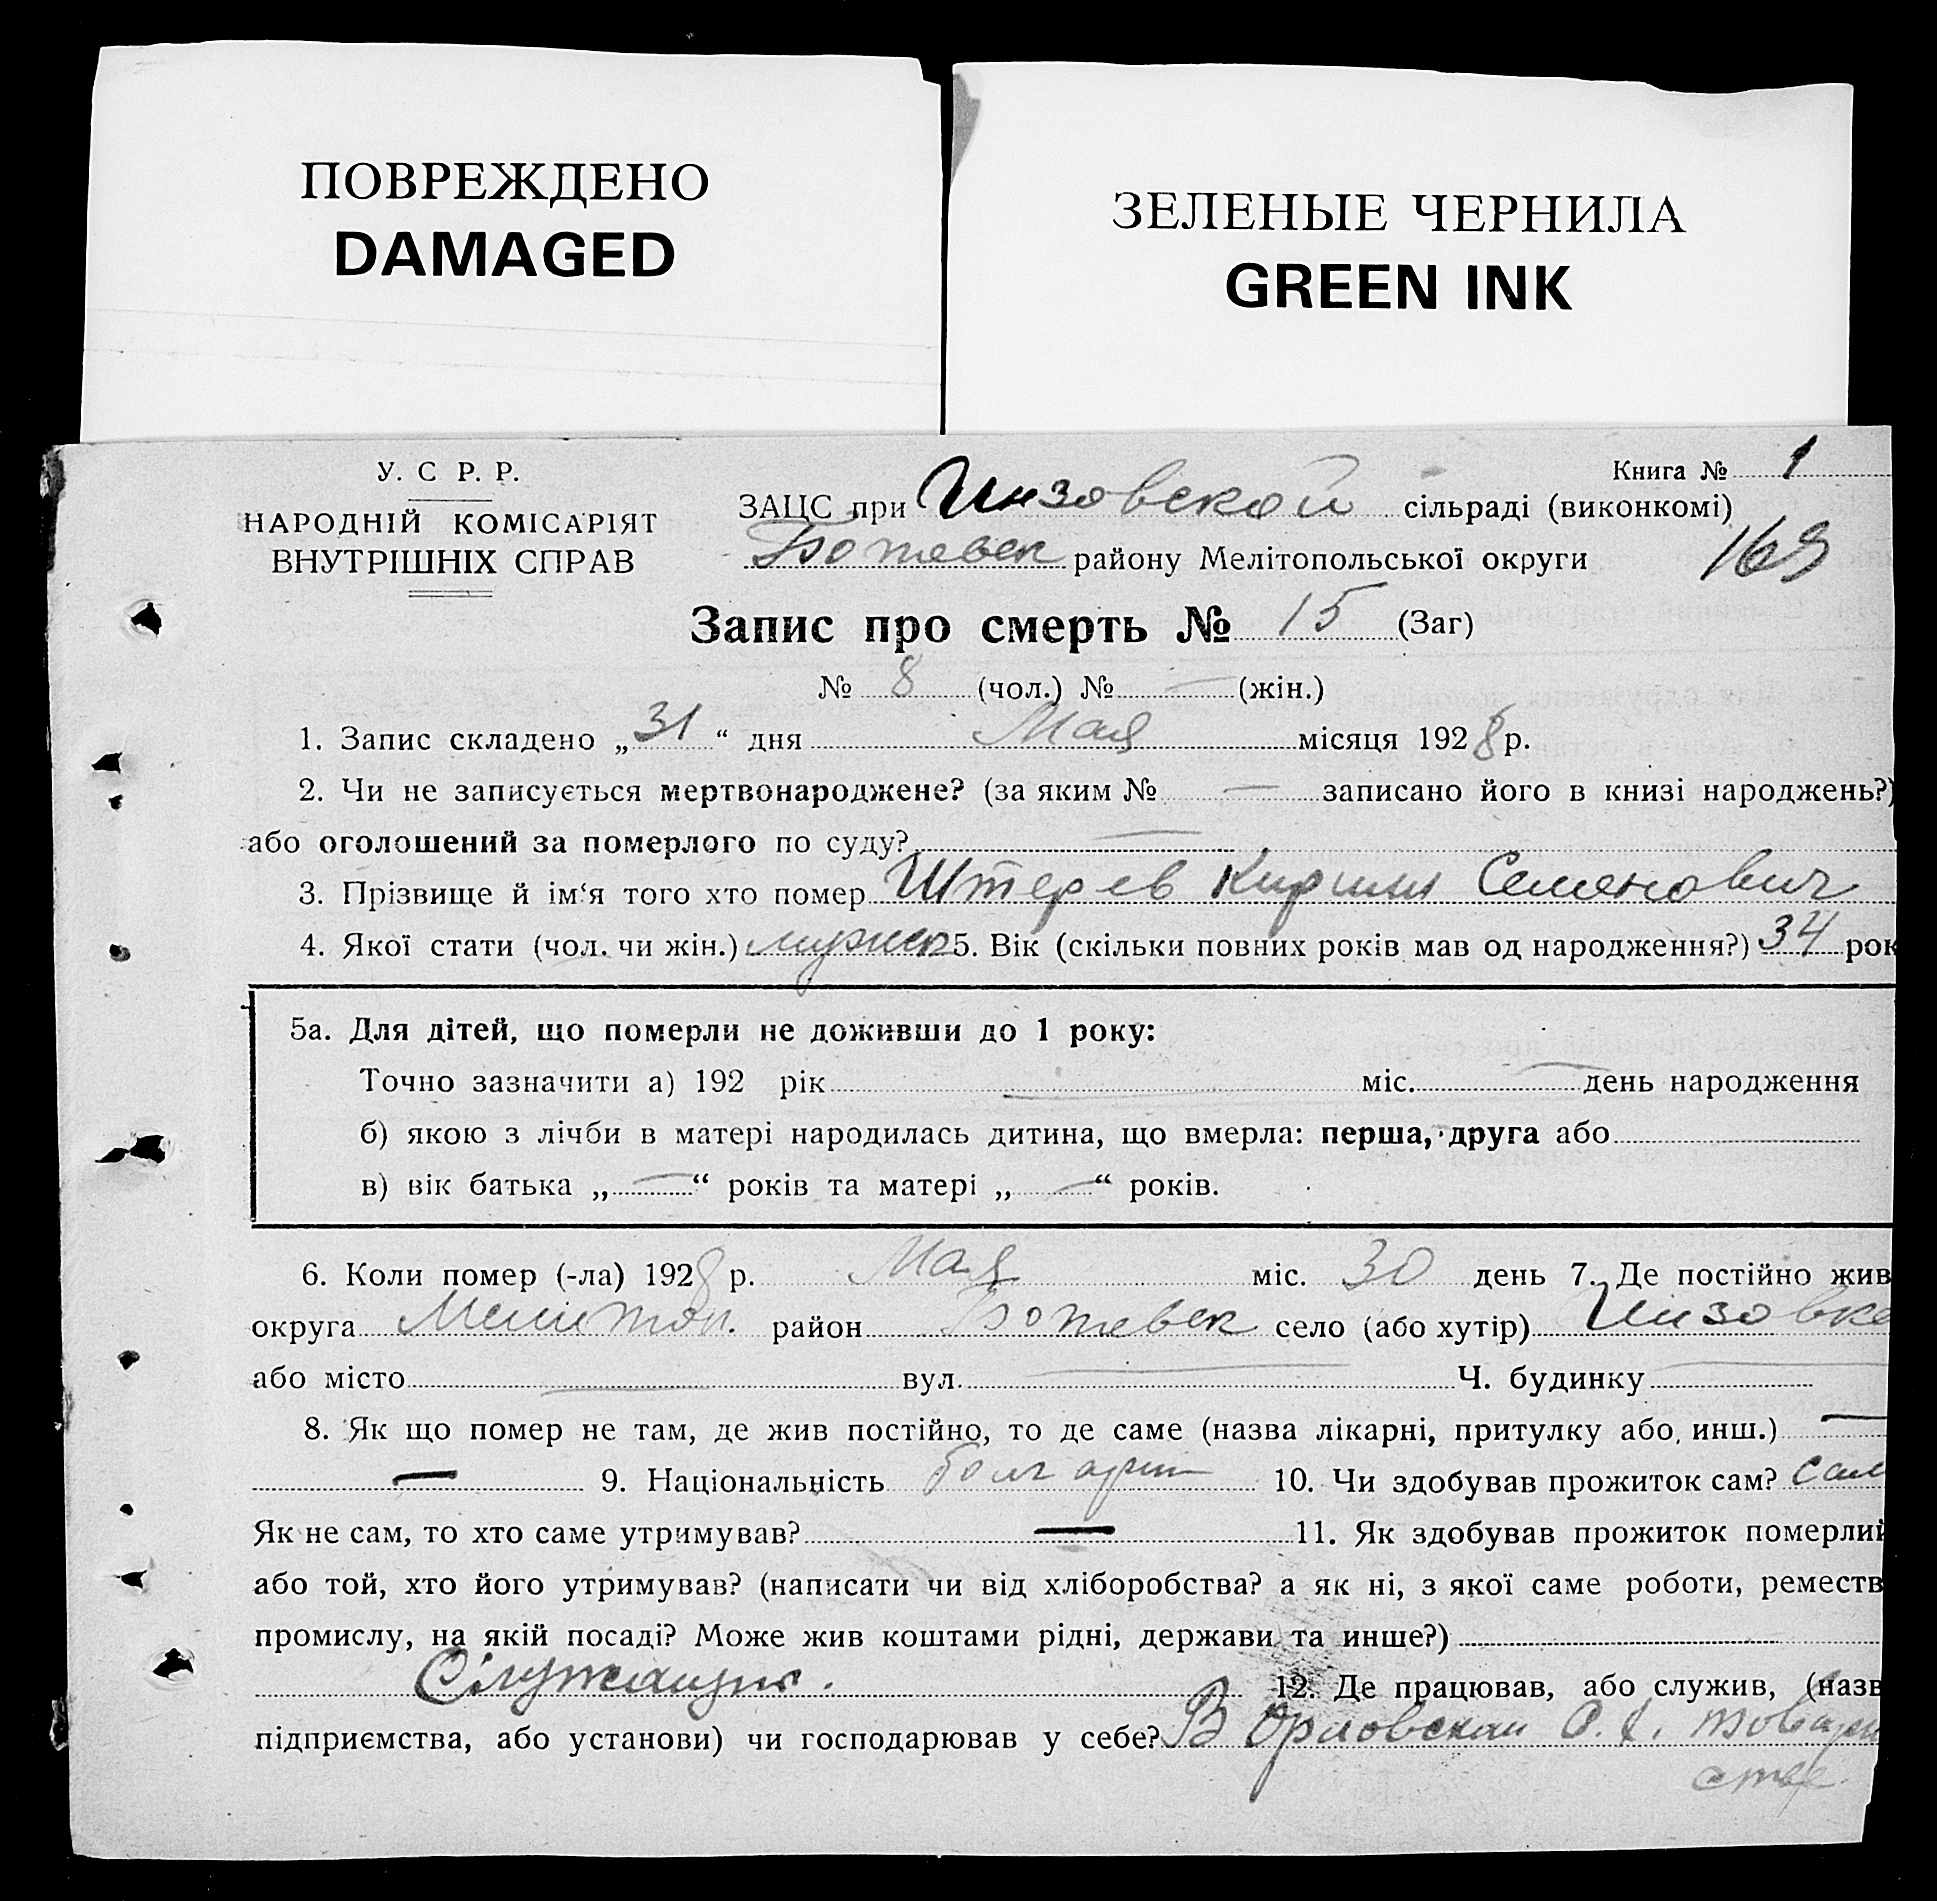 ПОВРЕЖДЕНО
DAMAGED
ЗЕЛЕНЫЕ ЧЕРНИЛА
GREEN INK
У. С Р. Р.
НАРОДНІЙ КОМІСАРІЯТ
ВНУТРІШНІХ СПРАВ
Книга № 1
ЗАЦС при Инзовской сільраді (виконкомі)
Ботевск району Мелітопольської округи
169
Запис про смерть № 15 (Заг)
№ 8 (чол.) № — (жін.)
1. Запис складено „31“ дня Мая місяця 1928 р.
2. Чи не записується мертвонароджене? (за яким № — записано його в книзі народжень?)
або оголошений за померлого по суду? —
3. Прізвище й ім‘я того хто помер Штерев Кирилл Семенович
4. Якої стати (чол. чи жін.) мужск 5. Вік (скільки повних років мав од народження?) 34 рок
5а. Для дітей, що померли не доживши до 1 року:
Точно зазначити а) 192 рік — міс. — день народження
б) якою з лічби в матері народилась дитина, що вмерла: перша, друга або
в) вік батька „—“ років та матері „—“ років.
6. Коли помер (-ла) 1928 р. Мая міс. 30 день 7. Де постійно жив
округа Мелитоп. район Ботевск село (або хутір) Инзовке
або місто — вул. — Ч. будинку —
8. Як що помер не там, де жив постійно, то де саме (назва лікарні, притулку або инш.) —
— 9. Національність болгарин 10. Чи здобував прожиток сам? сам
Як не сам, то хто саме утримував? — 11. Як здобував прожиток померлий
або той, хто його утримував? (написати чи від хліборобства? а як ні, з якої саме роботи, реместв
промислу, на якій посаді? Може жив коштами рідні, держави та инше?)
Служащий. 12. Де працював, або служив, (назв
підприємства, або установи) чи господарював у себе? В Орловском С. Х. товари
стве